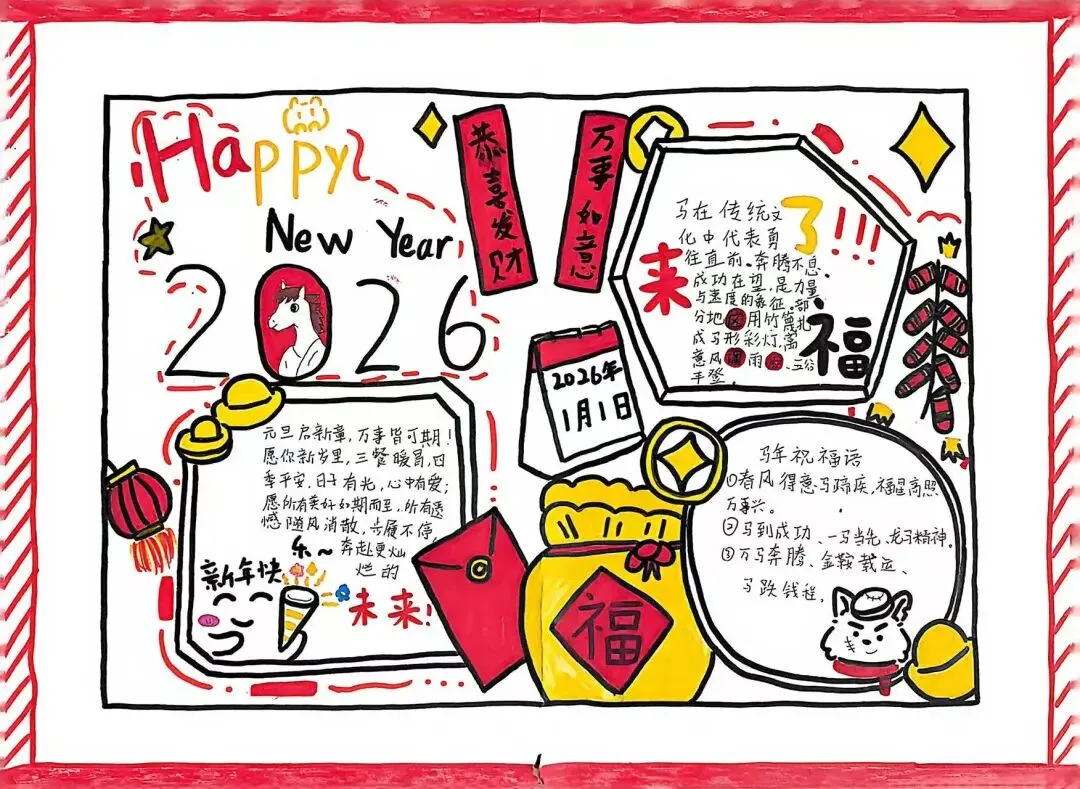 Happy
New Year
2026
恭喜发财
万事如意
马在传统文
化中代表勇
往直前、奔腾不息、
成功在望,是力量
与速度的象征。部
分地区用竹篾扎
成马形彩灯,寓
意风调雨顺、五谷
丰登。
福来了!!!
2026年
1月1日
元旦启新章,万事皆可期!
愿你新岁里,三餐暖胃,四
季平安,日子有光,心中有爱;
愿所有美好如期而至,所有遗
憾随风消散,步履不停,
奔赴更灿
烂的
未来!
新年快乐~
福
马年祝福语
①春风得意马蹄疾,福星高照
万事兴。
②马到成功、一马当先、龙马精神。
③万马奔腾、金鞍载运、
马跃钱程。